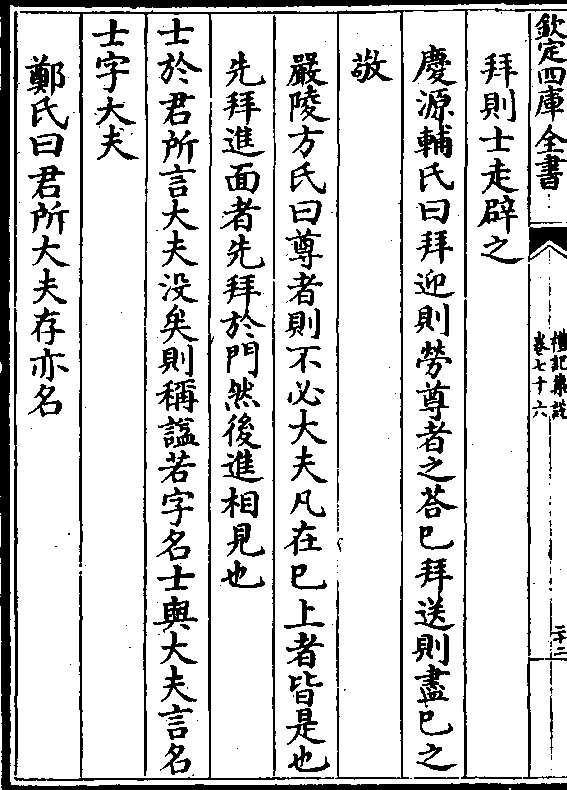 欽定四庫全書
禮記集說
卷七十六
二十二
拜則士走辟之
慶源輔氏曰拜迎則勞尊者之荅已拜送則盡已之
敬
嚴陵方氏曰尊者則不必大夫凡在已上者皆是也
先拜進面者先拜於門然後進相見也
士於君所言大夫没矣則稱諡若字名士與大夫言名
士字大夫
鄭氏曰君所大夫存亦名